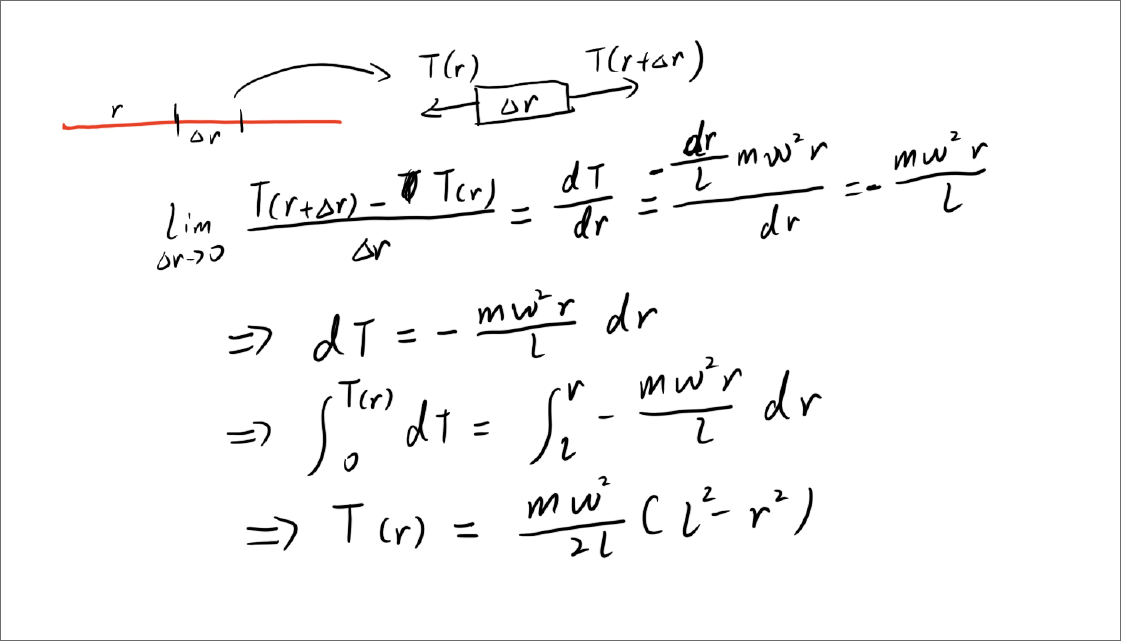 T(r) T(r+Δr)
r Δr Δr
lim Δr→0 (T(r+Δr) - T(r))/Δr = dT/dr = (-(dr/l) mω²r)/dr = - mω²r/l
⇒ dT = - mω²r/l dr
⇒ ∫₀^T(r) dT = ∫_l^r - mω²r/l dr
⇒ T(r) = mω²/2l (l² - r²)